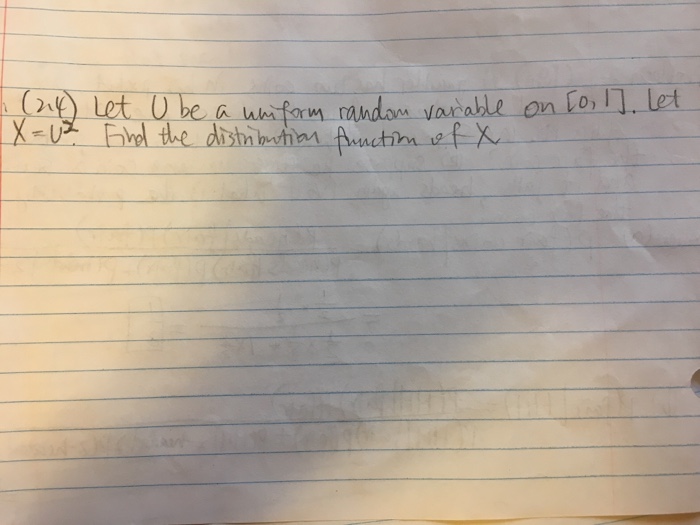 (2.4) Let U be a uniform random variable on [0,1]. Let
X=U². Find the distribution function of X